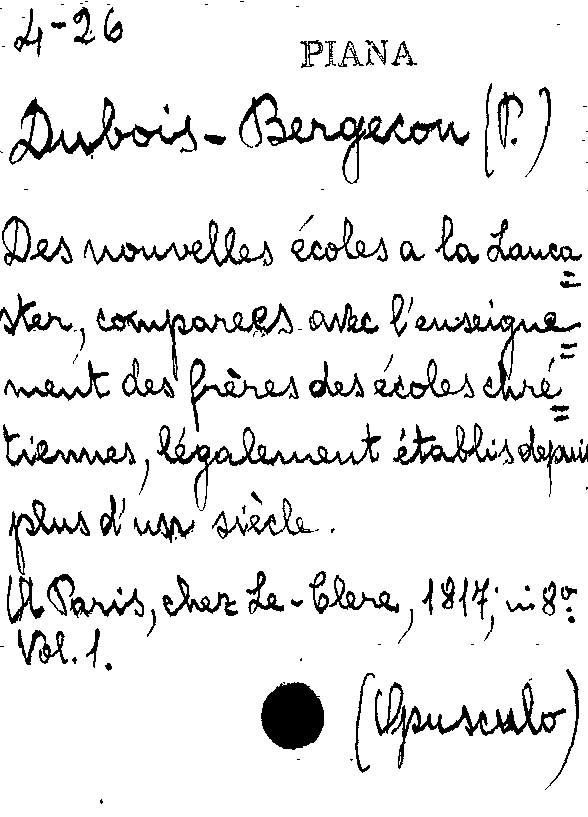 4-26
PIANA
Dubois-Bergeron (P.)
Des nouvelles écoles a la Lanca=
ster, comparees avec l'enseigne=
ment des frères des écoles chré=
tiennes, légalement établis depuis
plus d'un siècle.
A Paris, chez Le-Clere, 1817; in 8º.
Vol. 1.
(Opusculo)